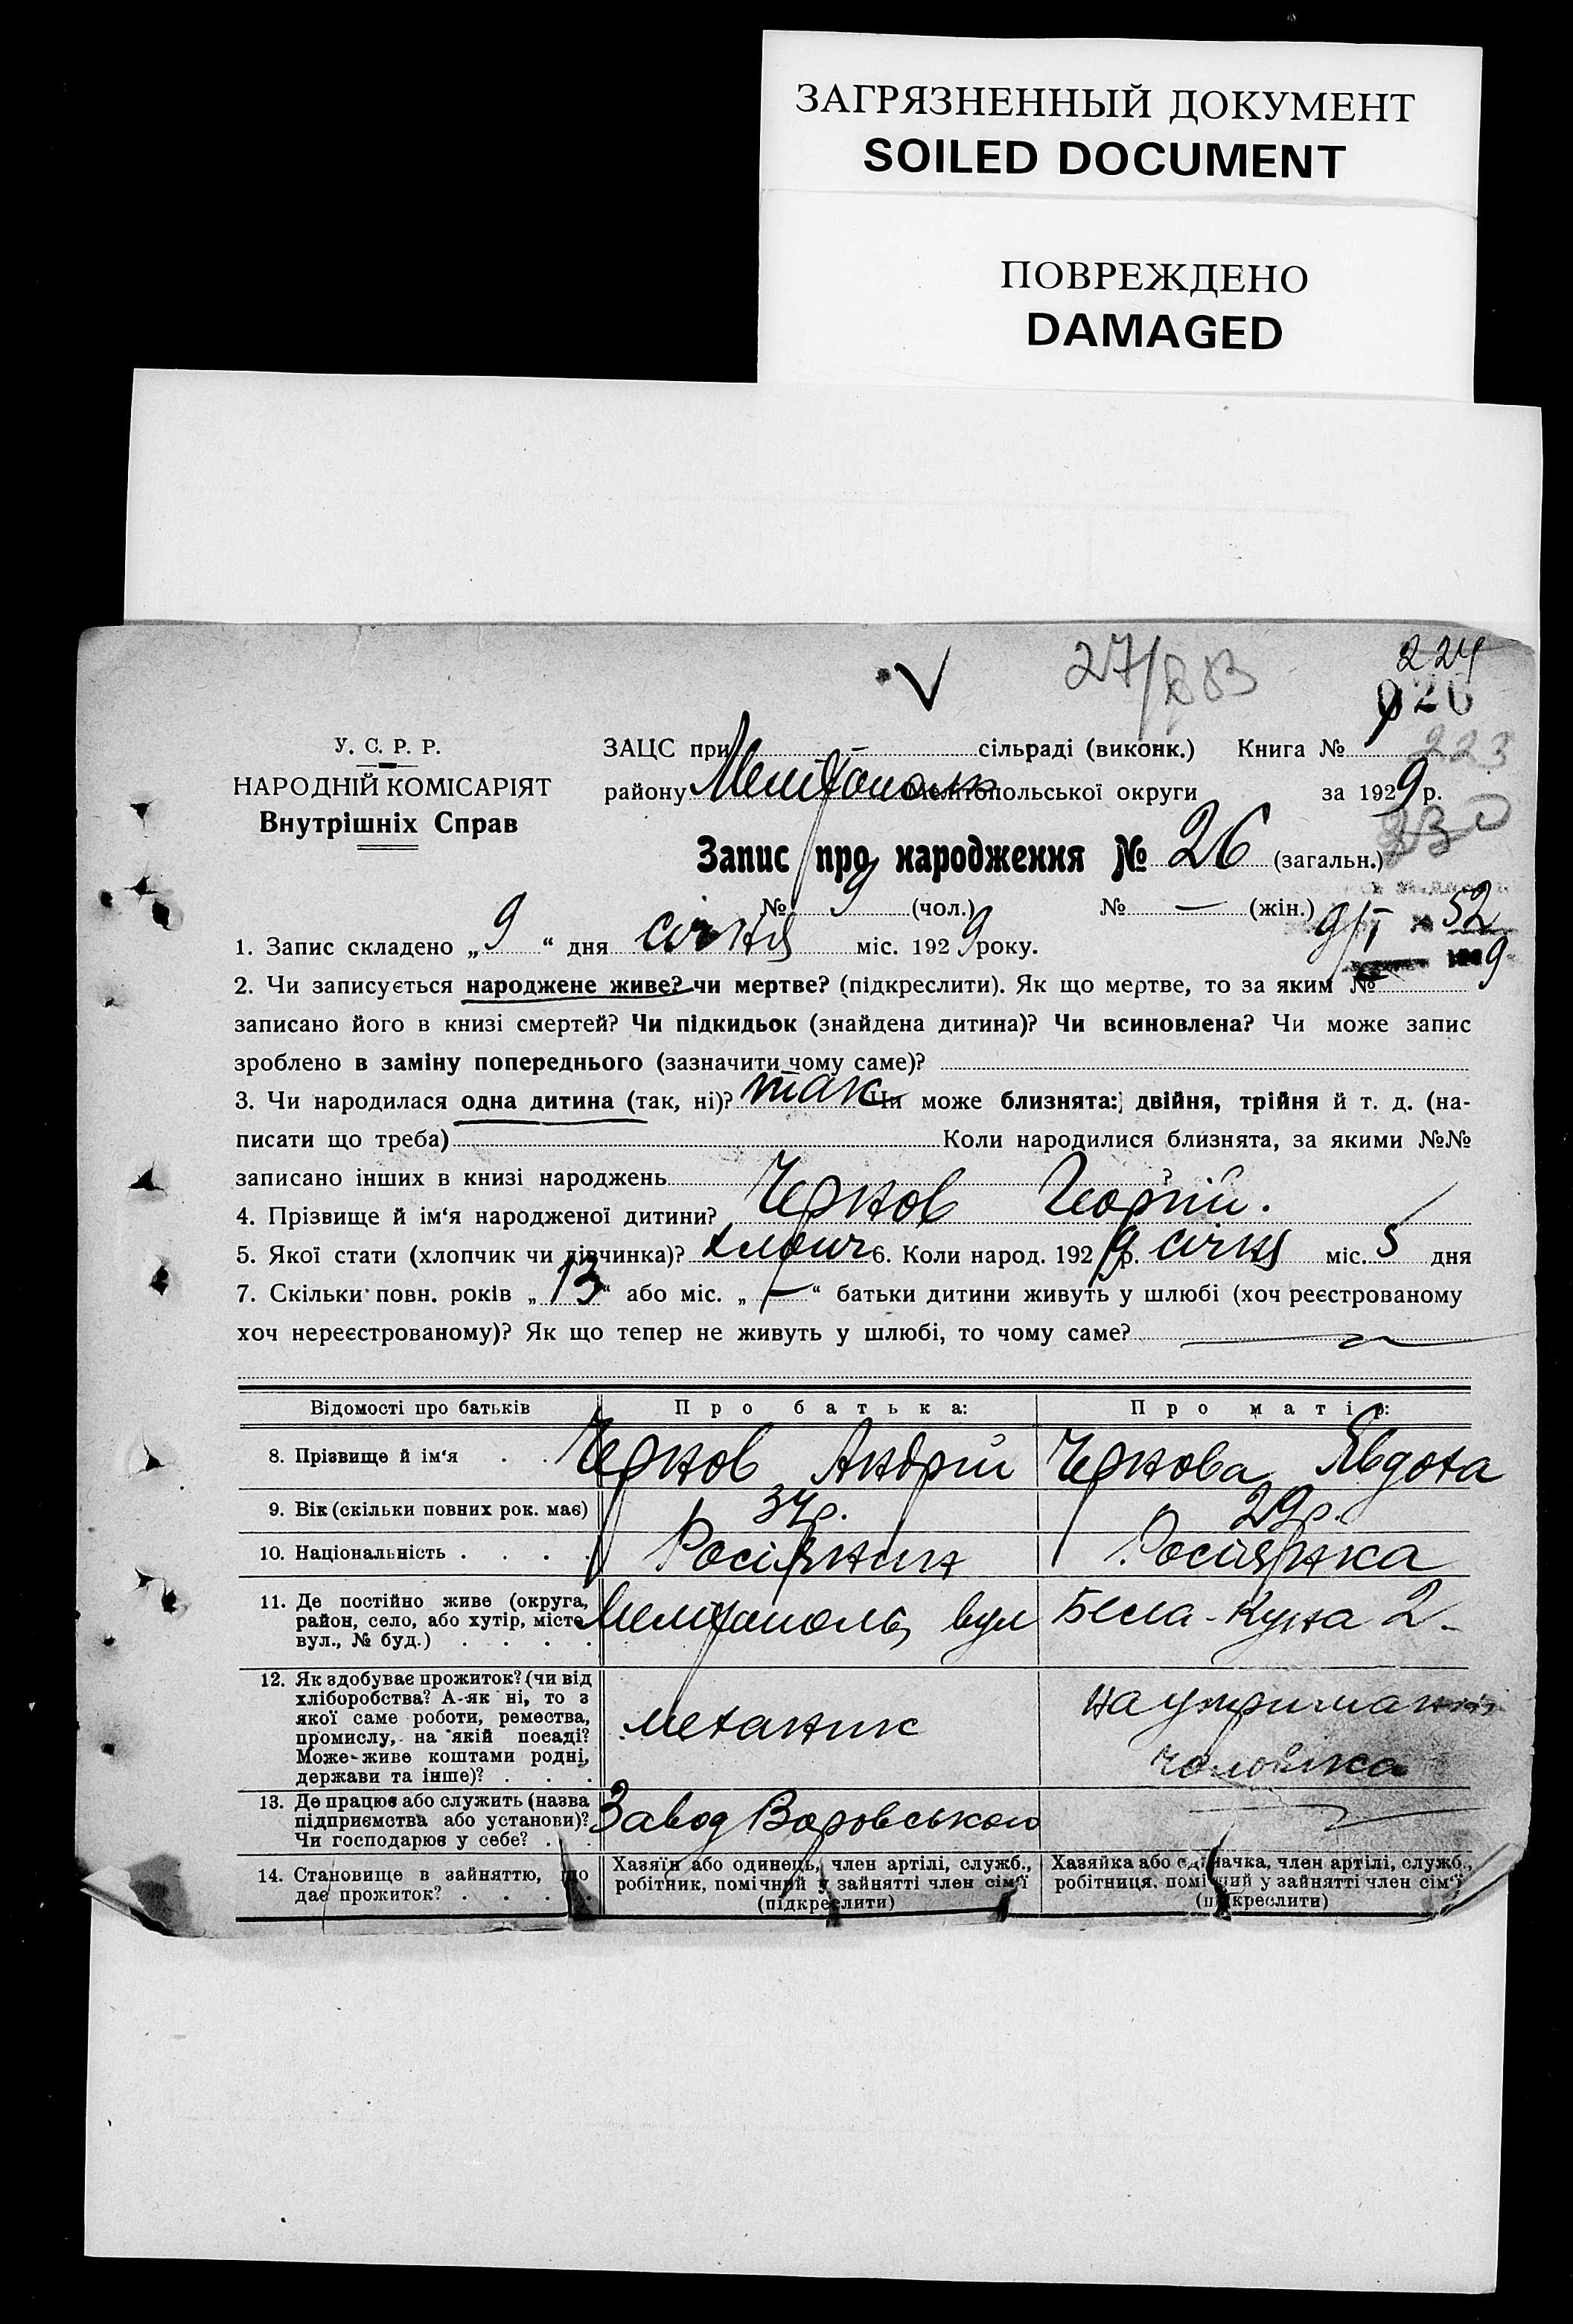 ЗАГРЯЗНЕННЫЙ ДОКУМЕНТ
SOILED DOCUMENT
ПОВРЕЖДЕНО
DAMAGED
27/
224
223
У. С. Р. Р.
НАРОДНІЙ КОМІСАРІЯТ
Внутрішніх Справ
ЗАЦС при сільраді (виконк.) Книга №
району Мелітополь Мелітопольської округи за 1929 р.
Запис про народження № 26 (загальн.)
№ 9 (чол.) № — (жін.)
9/I 52
1. Запис складено „9“ дня січня міс. 1929 року.
2. Чи записується народжене живе? чи мертве? (підкреслити). Як що мертве, то за яким №
записано його в книзі смертей? Чи підкидьок (знайдена дитина)? Чи всиновлена? Чи може запис
зроблено в заміну попереднього (зазначити чому саме)?
3. Чи народилася одна дитина (так, ні)? так Чи може близнята: двійня, трійня й т. д. (на-
писати що треба) Коли народилися близнята, за якими №№
записано інших в книзі народжень ?
4. Прізвище й ім‘я народженої дитини? Чернов Георгій.
5. Якої стати (хлопчик чи дівчинка)? хлопч 6. Коли народ. 1929 р. січня міс. 5 дня
7. Скільки повн. років „13“ або міс. „—“ батьки дитини живуть у шлюбі (хоч реєстрованому
хоч нереєстрованому)? Як що тепер не живуть у шлюбі, то чому саме?
Відомості про батьків Про батька: Про матір:
8. Прізвище й ім‘я . . Чернов Андрій Чернова Явдоха
9. Вік (скільки повних рок. має) 34 р. 29 р.
10. Національність . . . . Росіянин Росіянка
11. Де постійно живе (округа,
район, село, або хутір, місто
вул., № буд.) . . . .
Мелітополь, вул Бела-Куна 2
12. Як здобуває прожиток? (чи від
хліборобства? А-як ні, то з
якої саме роботи, ремества,
промислу, на якій посаді?
Може-живе коштами родні,
держави та інше)? . . .
механик
на утриманні
чоловіка
13. Де працює або служить (назва
підприємства або установи)?
Чи господарює у себе? . .
Завод Воровського
14. Становище в зайняттю, що
дає прожиток? . . . .
Хазяїн або одинець, член артілі, служб.,
робітник, помічний у зайнятті член сім‘ї
(підкреслити)
Хазяйка або одиначка, член артілі, служб.,
робітниця, помічний у зайнятті член сім‘ї
(підкреслити)